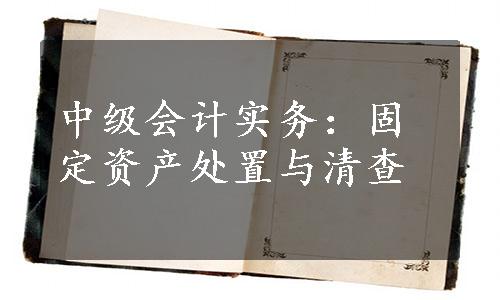 中级会计实务：固
定资产处置与清查